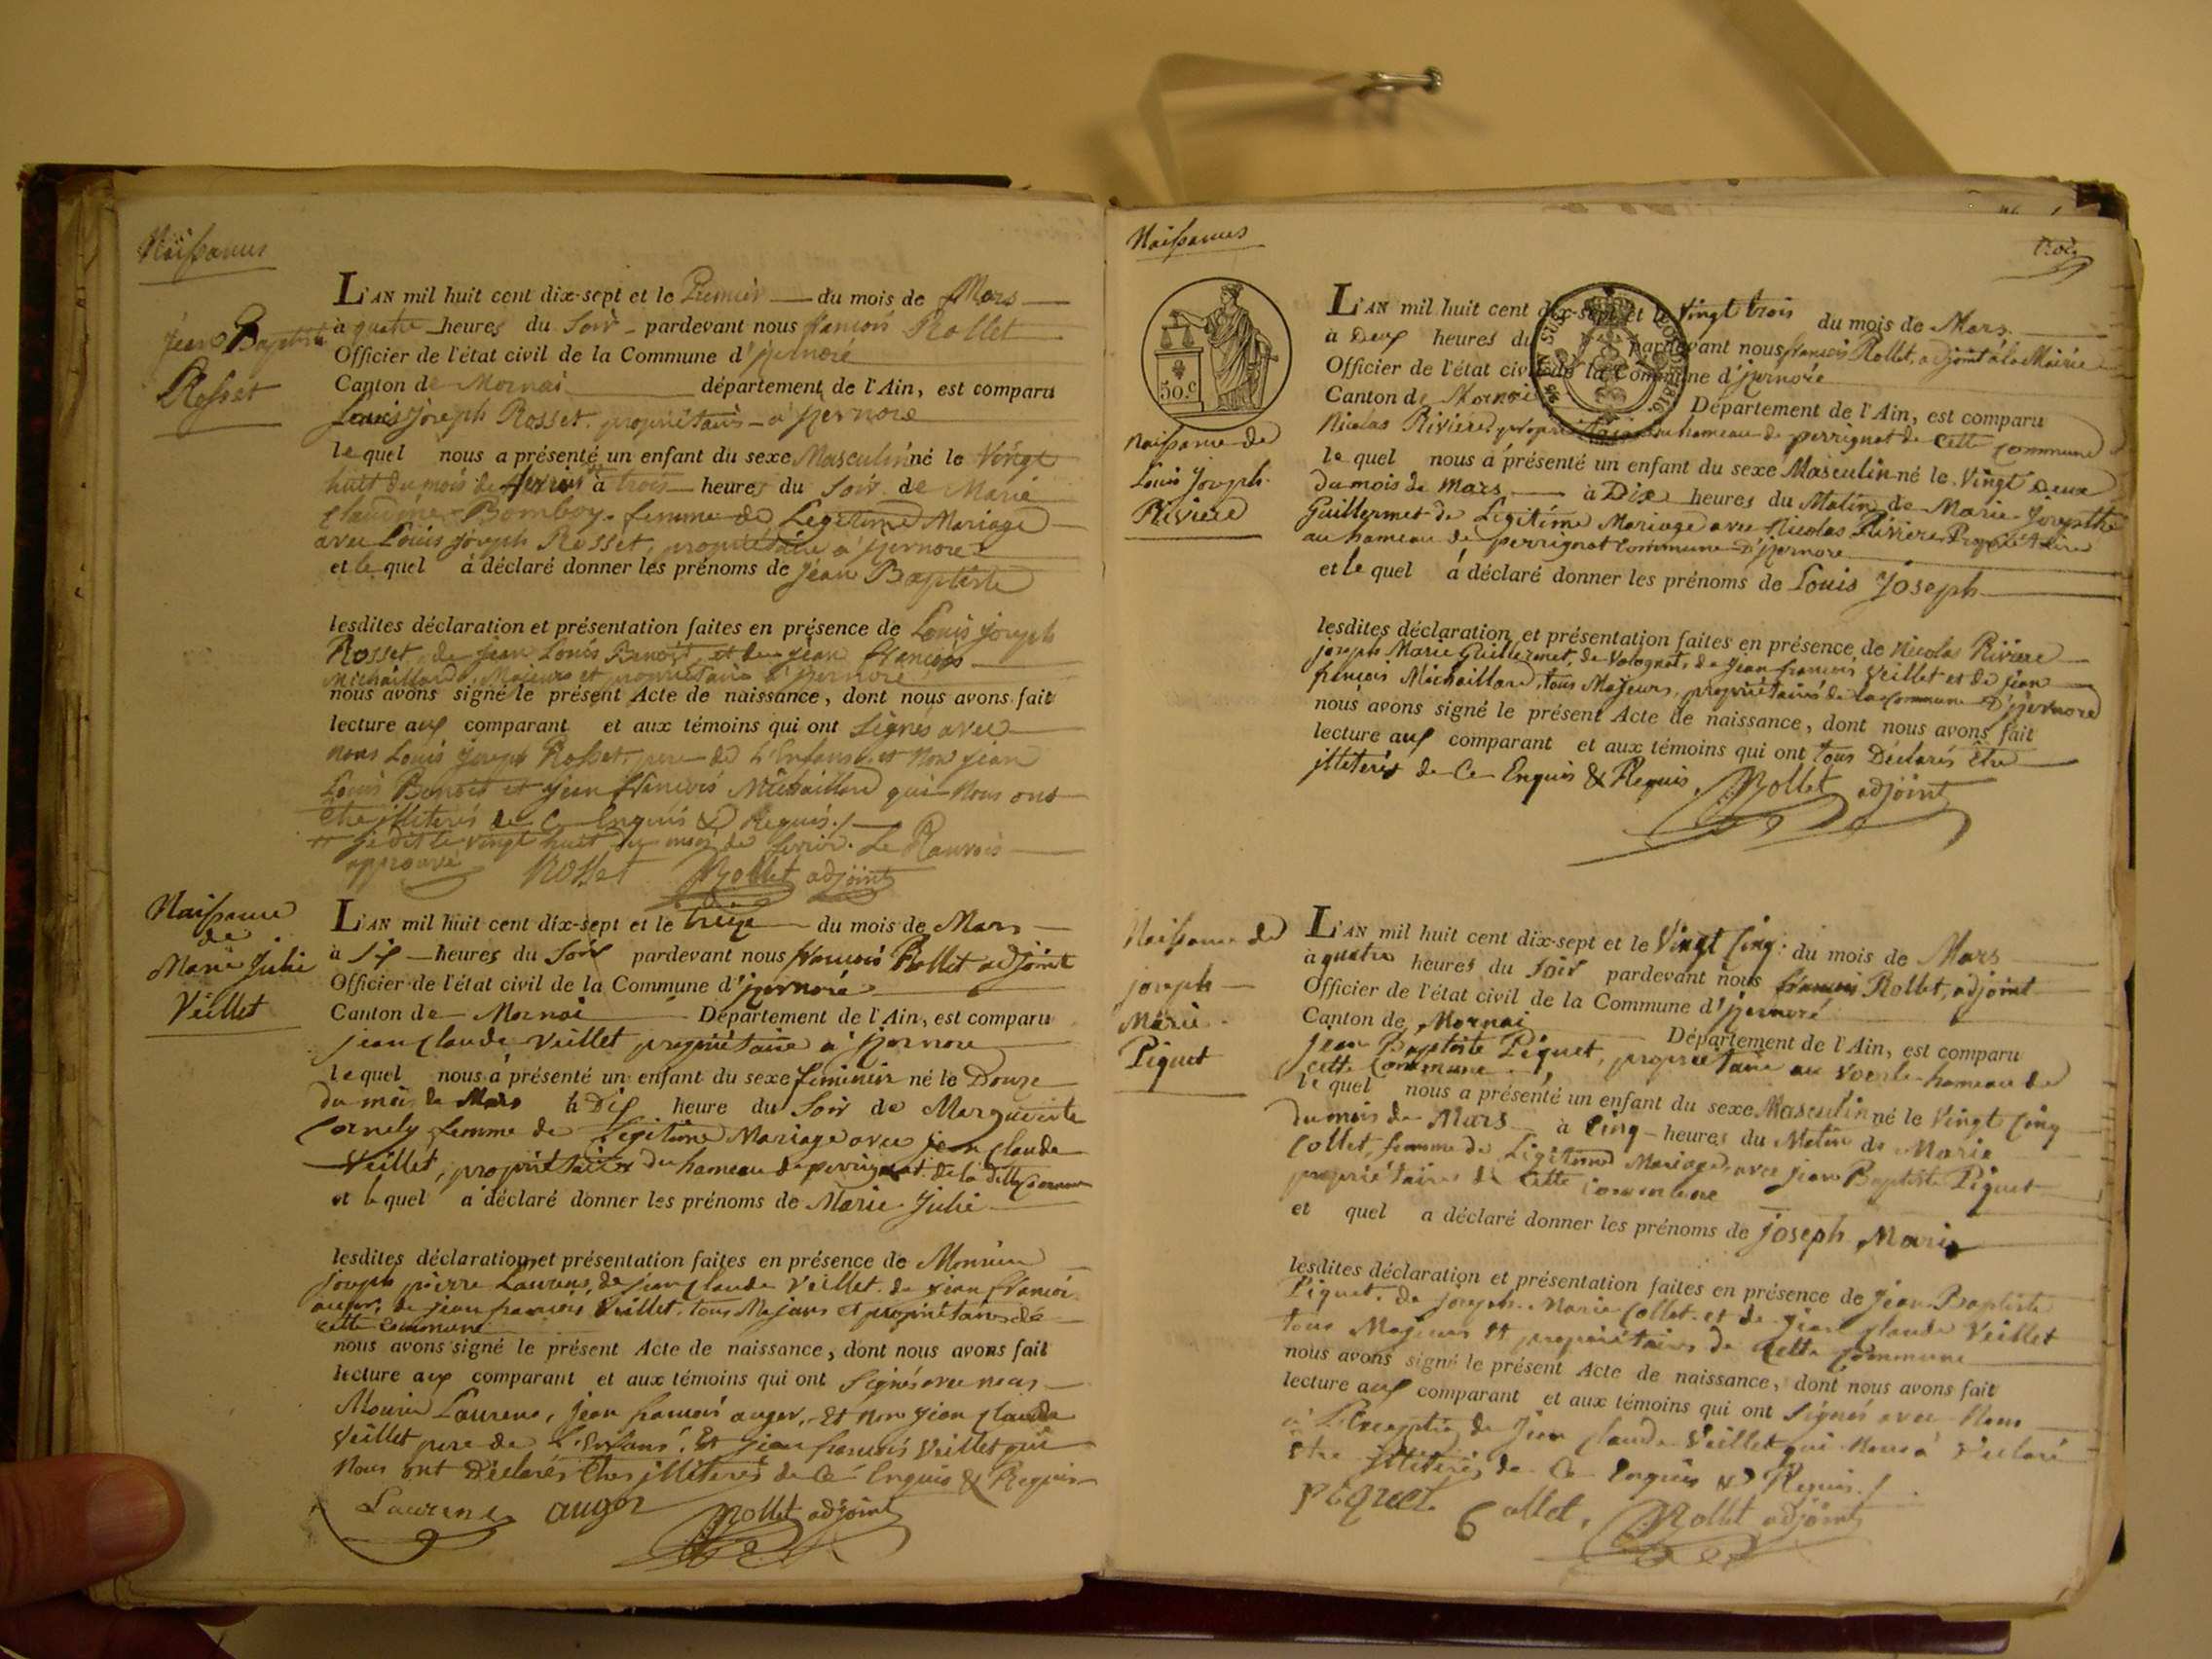 Naissances
Jean Baptiste
Rosset
L'AN mil huit cent dix-sept et le Premier du mois de Mars
à quatre heures du Soir pardevant nous françois Rollet
Officier de l'état civil de la Commune d'Izernore
Canton de Mornai département de l'Ain, est comparu
Louis Joseph Rosset, propriétaire à Izernore
lequel nous a présenté un enfant du sexe Masculin né le Vingt
huit du mois de à trois heures du Soir de Marie
Claudine Bomboy femme de Legitime Mariage
avec Louis Joseph Rosset, propriétaire à Izernore
et lequel à déclaré donner les prénoms de Jean Baptiste
lesdites déclaration et présentation faites en présence de Louis Joseph
Rosset, de Jean Louis Benoit et de jean françois
Michaillard, Majeurs et propriétaire d'Izernore
nous avons signé le présent Acte de naissance, dont nous avons fait
lecture aux comparant et aux témoins qui ont Signés avec
nous Louis Joseph Rosset, pere de L'Enfant, et Non Jean
Louis Benoit et Jean françois Michaillard qui Nous ont
Etre illiterés de Ce Enquis & Requis ./
Je dit le vingt huit du mois de fevrier. Le
approuvé Rosset Rollet adjoint
Naissance
de
Marie Julie
Veillet
L'AN mil huit cent dix-sept et le treize du mois de Mars
à Six heures du Soir pardevant nous françois Rollet adjoint
Officier de l'état civil de la Commune d'Izernore
Canton de Mornai Département de l'Ain, est comparu
jean Claude Veillet propriétaire à Izernore
lequel nous à présenté un enfant du sexe feminin né le Douze
du mois de Mars à Dix heure du Soir de Marguerite
Cornely femme de Legitime Mariage avec jean Claude
Veillet, propriétaires du hameau de perrignat de la ditte Commune
et lequel a déclaré donner les prénoms de Marie Julie
lesdites déclaration et présentation faites en présence de Monsieur
Joseph pierre Laurens, de Jean Claude Veillet, de jean françois
auger, de Jean françois Veillet, tous Majeurs et propriétaires de
cette commune
nous avons signé le présent Acte de naissance, dont nous avons fait
lecture aux comparant et aux témoins qui ont Signés avec nous
Laurens, jean françois auger, Et Non Jean Claude
Veillet pere de L'Enfant, Et Jean françois Veillet qui
Nous ont Déclarés Etres illiterés de Ce Enquis & Requis
Laurens auger Rollet adjoint
Naissances
50 c
Naissance de
Louis Joseph
Riviere
L'AN mil huit cent dix-sept et le Vingt trois du mois de Mars
à Deux heures du pardevant nous françois Rollet, adjoint à la Mairie
Officier de l'état civil de la Commune d'Izernore
Canton de Mornai Département de l'Ain, est comparu
Nicolas Riviere, propriétaire du hameau de perrignat de Cette Commune
lequel nous à présenté un enfant du sexe Masculin né le Vingt Deux
du mois de Mars à Dix heures du Matin de Marie Josephte
Guillermet de Legitime Mariage avec Nicolas Riviere Propriétaire
au hameau de perrignat commune d'Izernore
et lequel á déclaré donner les prénoms de Louis Joseph
lesdites déclaration et présentation faites en présence de Nicolas Riviere
joseph Marie Guillermet, de Volognat, de Jean françois Veillet et de jean
françois Michaillard, tous Majeurs, propriétaires de la Commune d'Izernore
nous avons signé le présent Acte de naissance, dont nous avons fait
lecture aux comparant et aux témoins qui ont tous Déclarés Etre
illiterés de Ce Enquis & Requis Rollet adjoint
Naissance de
joseph
Marie
Piquet
L'AN mil huit cent dix-sept et le Vingt Cinq du mois de Mars
à quatre heures du Soir pardevant nous françois Rollet, adjoint
Officier de l'état civil de la Commune d'Izernore
Canton de Mornai Département de l'Ain, est comparu
Jean Baptiste Piquet, propriétaire au hameau de
cette Commune
lequel nous a présenté un enfant du sexe Masculin né le Vingt Cinq
du mois de Mars à Cinq heures du Matin de Marie
Collet, femme de Legitime Mariage avec Jean Baptiste Piquet
propriétaires de Cette Commune
et quel a déclaré donner les prénoms de Joseph Marie
lesdites déclaration et présentation faites en présence de Jean Baptiste
Piquet, de Joseph Marie Collet et de Jean Claude Veillet
tous Majeurs et propriétaires de Cette Commune
nous avons signé le présent Acte de naissance, dont nous avons fait
lecture aux comparant et aux témoins qui ont Signés avec Nous
à L'Exception de Jean Claude Veillet qui Nous a Déclaré
Etre illiterés de Ce Enquis & Requis ./
Piquet Collet, Rollet adjoint